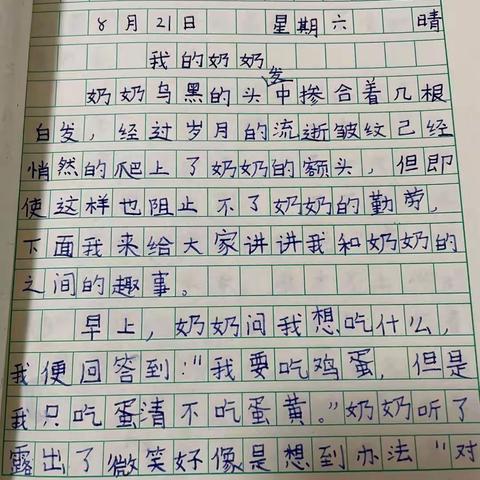 8月21日 星期六 晴
我的奶奶
奶奶乌黑的头发中掺合着几根
白发，经过岁月的流逝皱纹己经
悄然的爬上了奶奶的额头，但即
使这样也阻止不了奶奶的勤劳，
下面我来给大家讲讲我和奶奶的
之间的趣事。
早上，奶奶问我想吃什么，
我便回答到："我要吃鸡蛋，但是
我只吃蛋清不吃蛋黄。"奶奶听了
露出了微笑好像是想到办法"对